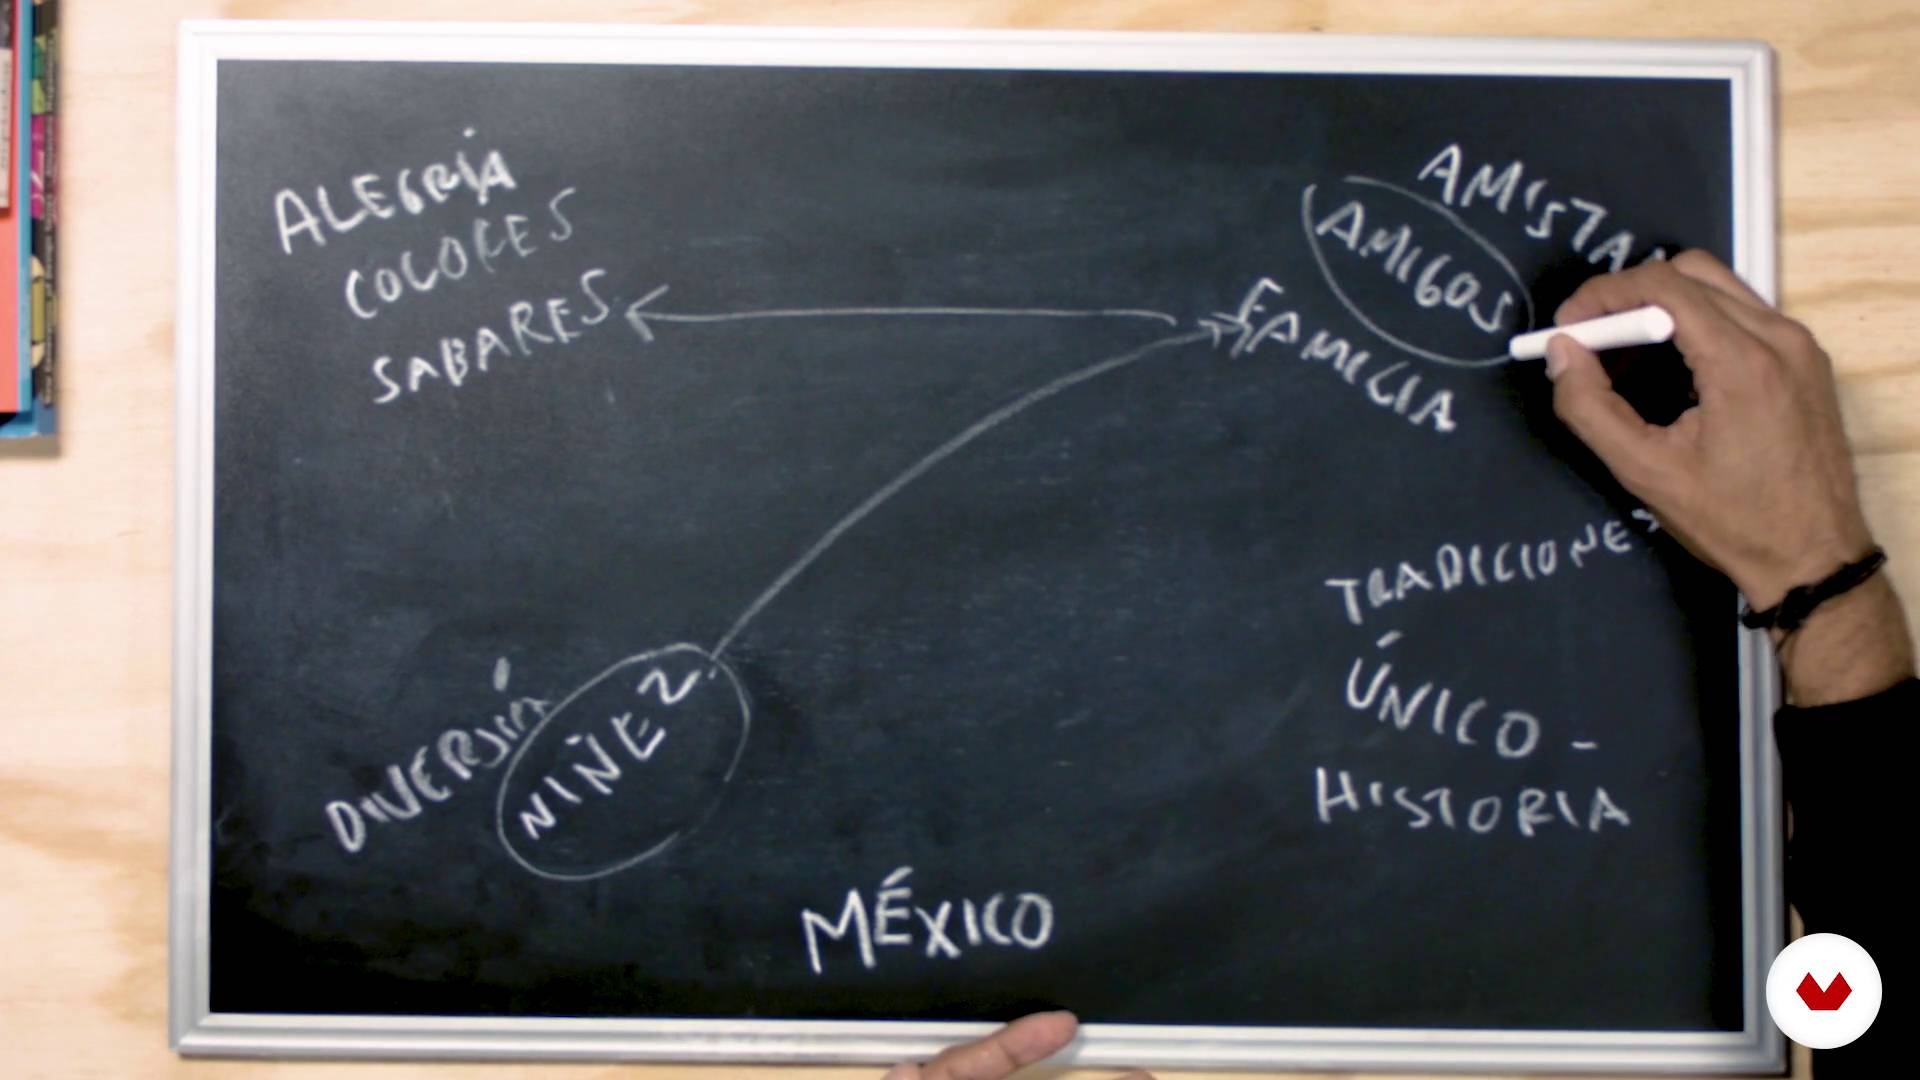 ALEGRÍA
COLORES
SABARES
AMISTA
AMIGOS
FAMILIA
TRADICIONES
ÚNICO -
HISTORIA
NIÑEZ
MÉXICO